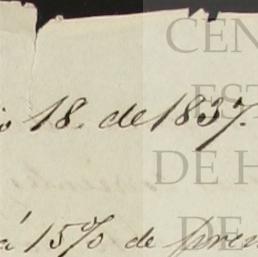 18. de 1837.
á 15% de
CEN
EST
DE H
DE